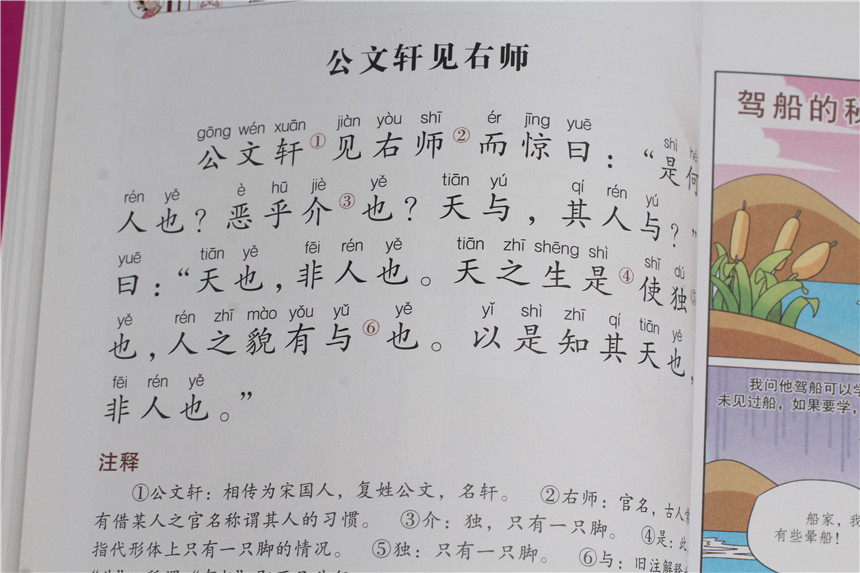 公文轩见右师
gōng wén xuān jiàn yòu shī ér jīng yuē shì hé
公文轩①见右师②而惊曰：“是何
rén yě è hū jiè yě tiān yú qí rén yú
人也？恶乎介③也？天与，其人与？”
yuē tiān yě fēi rén yě tiān zhī shēng shì shǐ dú
曰：“天也，非人也。天之生是④使独⑤
yě rén zhī mào yǒu yǔ yě yǐ shì zhī qí tiān yě
也，人之貌有与⑥也。以是知其天也，
fēi rén yě
非人也。”
注释
①公文轩：相传为宋国人，复姓公文，名轩。 ②右师：官名，古人常
有借某人之官名称谓其人的习惯。 ③介：独，只有一只脚。 ④是：此，
指代形体上只有一只脚的情况。 ⑤独：只有一只脚。 ⑥与：旧注解释
驾船的秘
我问他驾船可以学
未见过船，如果要学，
船家，我
有些晕船！